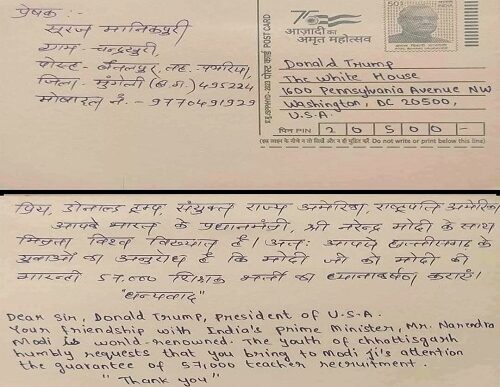 प्रेषक :-
सूरज मानिकपुरी
ग्राम - चन्द्रखुरी,
पोस्ट - बैजलपुर, तह. पथरिया,
जिला - मुंगेली (छ.ग.) 495224
मोबाइल नं. - 9770491929
POST CARD
पोस्ट कार्ड
आज़ादी का
अमृत महोत्सव
Donald Trump
The White House
1600 Pennsylvania Avenue NW
Washington, DC 20500,
U.S.A.
पिन PIN 2 0 5 0 0 -
(इस लाइन के नीचे न तो लिखें और न ही मुद्रित करें Do not write or print below this line)
प्रिय, डोनाल्ड ट्रम्प, संयुक्त राज्य अमेरिका, राष्ट्रपति अमेरिका
आपके भारत के प्रधानमंत्री, श्री नरेन्द्र मोदी के साथ
मित्रता विश्व विख्यात है। अतः आपसे छत्तीसगढ़ के
युवाओं का अनुरोध है कि मोदी जी को मोदी की
गारन्टी 57,000 शिक्षक भर्ती का ध्यानाकर्षण कराएं।
"धन्यवाद"
Dear sir, Donald Trump, president of U.S.A.
Your friendship with India's prime Minister, Mr. Narendra
Modi is world-renowned. The youth of chhattisgarh
humbly requests that you bring to Modi ji's attention
the guarantee of 57,000 teacher recruitment.
"Thank you"